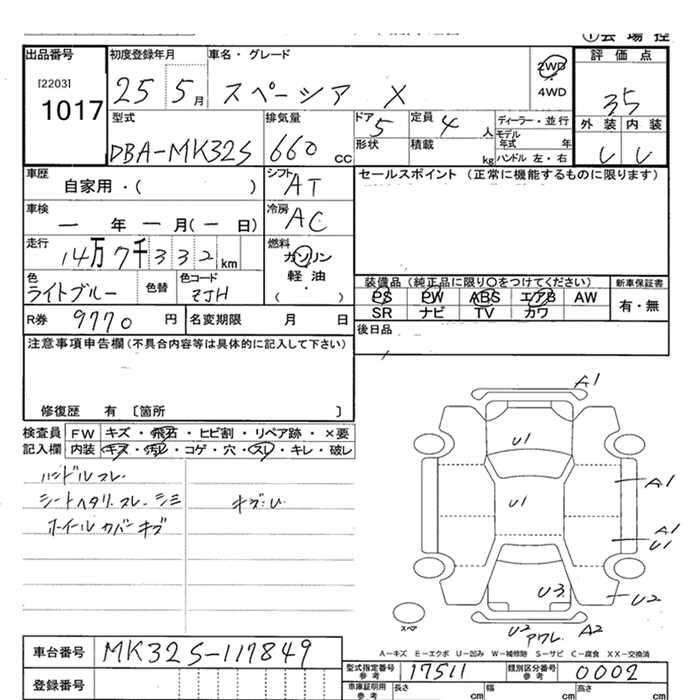 ①会場控
出品番号 初度登録年月 車名・グレード 評価点
[2203]
1017
25 5月 スペーシア X 2WD
4WD
3.5
型式 排気量 ドア 定員 ディーラー・並行 外装 内装
DBA-MK32S 660cc 5 4人 モデル年式 年
形状 積載 kg ハンドル 左・右
車歴 シフト セールスポイント (正常に機能するものに限ります)
自家用・( ) AT
車検 冷房
ー年ー月(ー日) AC
走行 燃料
14万7千332km ガソリン
軽油
( ・ )
色 色替 色コード
ライトブルー ZJH
装備品 (純正品に限り○をつけてください) 新車保証書
PS PW ABS エアB AW 有・無
SR ナビ TV カワ
R券 9770円 名変期限 月 日
後日品
注意事項申告欄(不具合内容等は具体的に記入して下さい)
修復歴 有 〔箇所 〕
検査員 FW キズ・飛石・ヒビ割・リペア跡・×要
記入欄 内装 キズ・汚レ・コゲ・穴・スレ・キレ・破レ
ハンドルスレ
シートヘタリ.スレ.シミ キズ:U
ホイールカバーキズ
A1
U1
U1
A1
A1
U1
U3
U2
U2 A2
スペア
A-キズ E-エクボ U-凹み W-補修跡 S-サビ C-腐食 XX-交換済
車台番号 MK32S-117849
型式指定番号 参考 17511 類別区分番号 参考 0002
登録番号
車庫証明用 参考 長さ cm 幅 cm 高さ cm